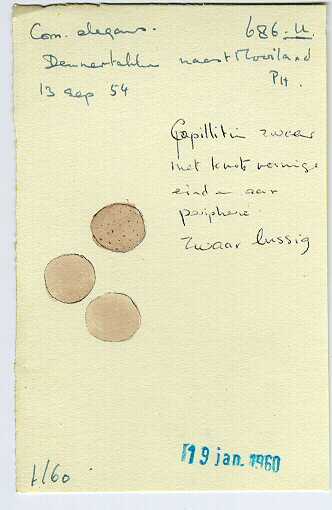 Com. elegans.
686-U.
Dennentakken naast Mooiland
PH.
13 sep 54
Capillitin zwaar
met knotsvormige
einden aan
peripherie
zwaar bussig
19 jan. 1960
1/60